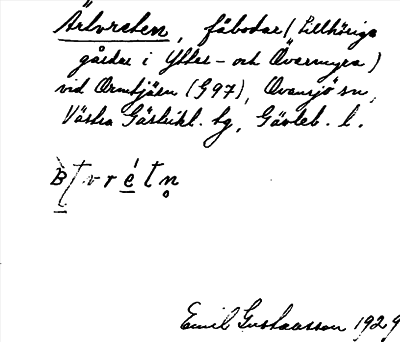 Ärtvreten, fäbodar (tillhöriga
gårdar i Ytter- och Övermyra)
vid Ormtjärn (G97), Ovansjö sn,
Västra Gästrikl. hg, Gävleb. l.
Emil Gustavsson 1929